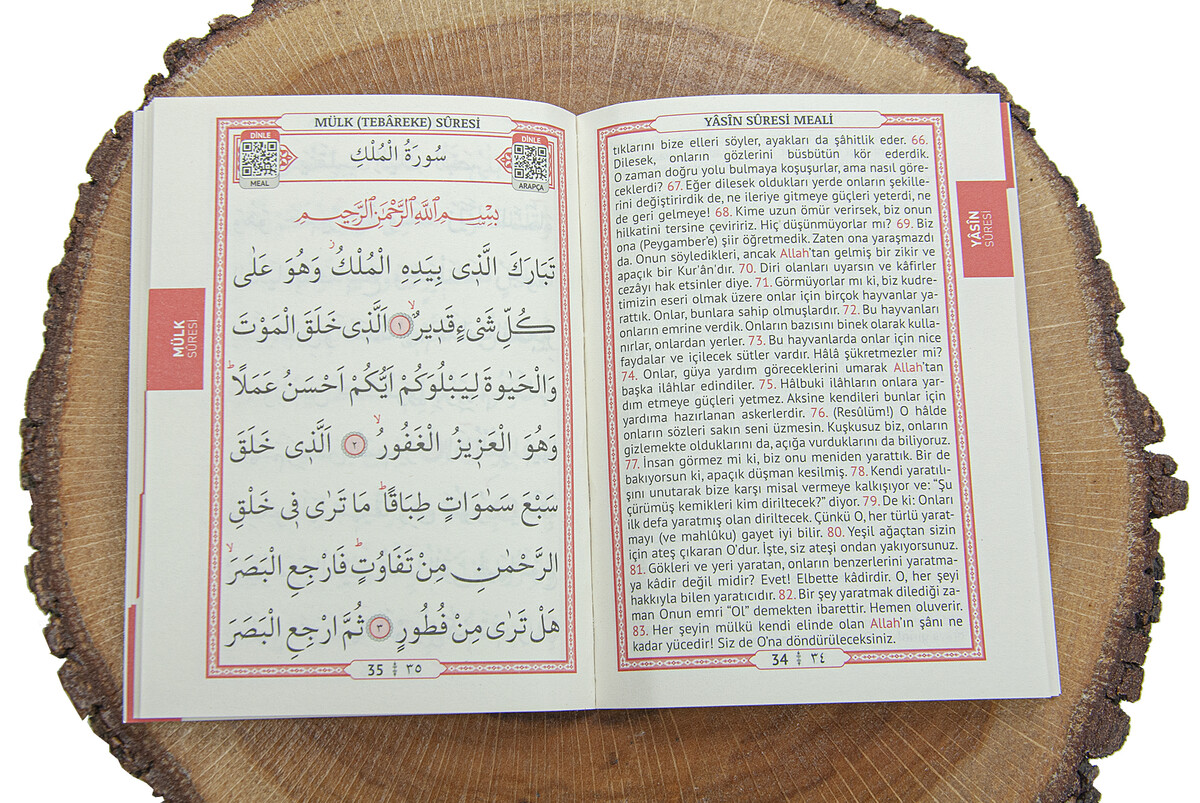 YÂSÎN SÛRESİ MEALİ
tıklarını bize elleri söyler, ayakları da şâhitlik eder. 66.
Dilesek, onların gözlerini büsbütün kör ederdik.
O zaman doğru yolu bulmaya koşuşurlar, ama nasıl göre-
ceklerdi? 67. Eğer dilesek oldukları yerde onların şekille-
rini değiştirirdik de, ne ileriye gitmeye güçleri yeterdi, ne
de geri gelmeye! 68. Kime uzun ömür verirsek, biz onun
hilkatini tersine çeviririz. Hiç düşünmüyorlar mı? 69. Biz
ona (Peygamber'e) şiir öğretmedik. Zaten ona yaraşmazdı
da. Onun söyledikleri, ancak Allah'tan gelmiş bir zikir ve
apaçık bir Kur'ân'dır. 70. Diri olanları uyarsın ve kâfirler
cezâyı hak etsinler diye. 71. Görmüyorlar mı ki, biz kudre-
timizin eseri olmak üzere onlar için birçok hayvanlar ya-
rattık. Onlar, bunlara sahip olmuşlardır. 72. Bu hayvanları
onların emrine verdik. Onların bazısını binek olarak kulla-
nırlar, onlardan yerler. 73. Bu hayvanlarda onlar için nice
faydalar ve içilecek sütler vardır. Hâlâ şükretmezler mi?
74. Onlar, güya yardım göreceklerini umarak Allah'tan
başka ilâhlar edindiler. 75. Hâlbuki ilâhların onlara yar-
dım etmeye güçleri yetmez. Aksine kendileri bunlar için
yardıma hazırlanan askerlerdir. 76. (Resûlüm!) O hâlde
onların sözleri sakın seni üzmesin. Kuşkusuz biz, onların
gizlemekte olduklarını da, açığa vurduklarını da biliyoruz.
77. İnsan görmez mi ki, biz onu meniden yarattık. Bir de
bakıyorsun ki, apaçık düşman kesilmiş. 78. Kendi yaratılı-
şını unutarak bize karşı misal vermeye kalkışıyor ve: "Şu
çürümüş kemikleri kim diriltecek?" diyor. 79. De ki: Onları
ilk defa yaratmış olan diriltecek. Çünkü O, her türlü yarat-
mayı (ve mahlûku) gayet iyi bilir. 80. Yeşil ağaçtan sizin
için ateş çıkaran O'dur. İşte, siz ateşi ondan yakıyorsunuz.
81. Gökleri ve yeri yaratan, onların benzerlerini yaratma-
ya kâdir değil midir? Evet! Elbette kâdirdir. O, her şeyi
hakkıyla bilen yaratıcıdır. 82. Bir şey yaratmak dilediği za-
man Onun emri "Ol" demekten ibarettir. Hemen oluverir.
83. Her şeyin mülkü kendi elinde olan Allah'ın şânı ne
kadar yücedir! Siz de O'na döndürüleceksiniz.
34 ٣٤
YÂSÎN
SÛRESİ
MÜLK (TEBÂREKE) SÛRESİ
DİNLE
MEAL
سُورَةُ الْمُلْكِ
DİNLE
ARAPÇA
بِسْمِ اللّٰهِ الرَّحْمٰنِ الرَّحِيمِ
تَبَارَكَ الَّذٖى بِيَدِهِ الْمُلْكُؗ وَهُوَ عَلٰى
كُلِّ شَىْءٍ قَدٖيرٌۙ ﴿١﴾ اَلَّذٖى خَلَقَ الْمَوْتَ
وَالْحَيٰوةَ لِيَبْلُوَكُمْ اَيُّكُمْ اَحْسَنُ عَمَلًاؕ
وَهُوَ الْعَزٖيزُ الْغَفُورُۙ ﴿٢﴾ اَلَّذٖى خَلَقَ
سَبْعَ سَمٰوَاتٍ طِبَاقًاؕ مَا تَرٰى فٖى خَلْقِ
الرَّحْمٰنِ مِنْ تَفَاوُتٍؕ فَارْجِعِ الْبَصَرَۙ
هَلْ تَرٰى مِنْ فُطُورٍ ﴿٣﴾ ثُمَّ ارْجِعِ الْبَصَرَ
35 ٣٥
MÜLK
SÛRESİ